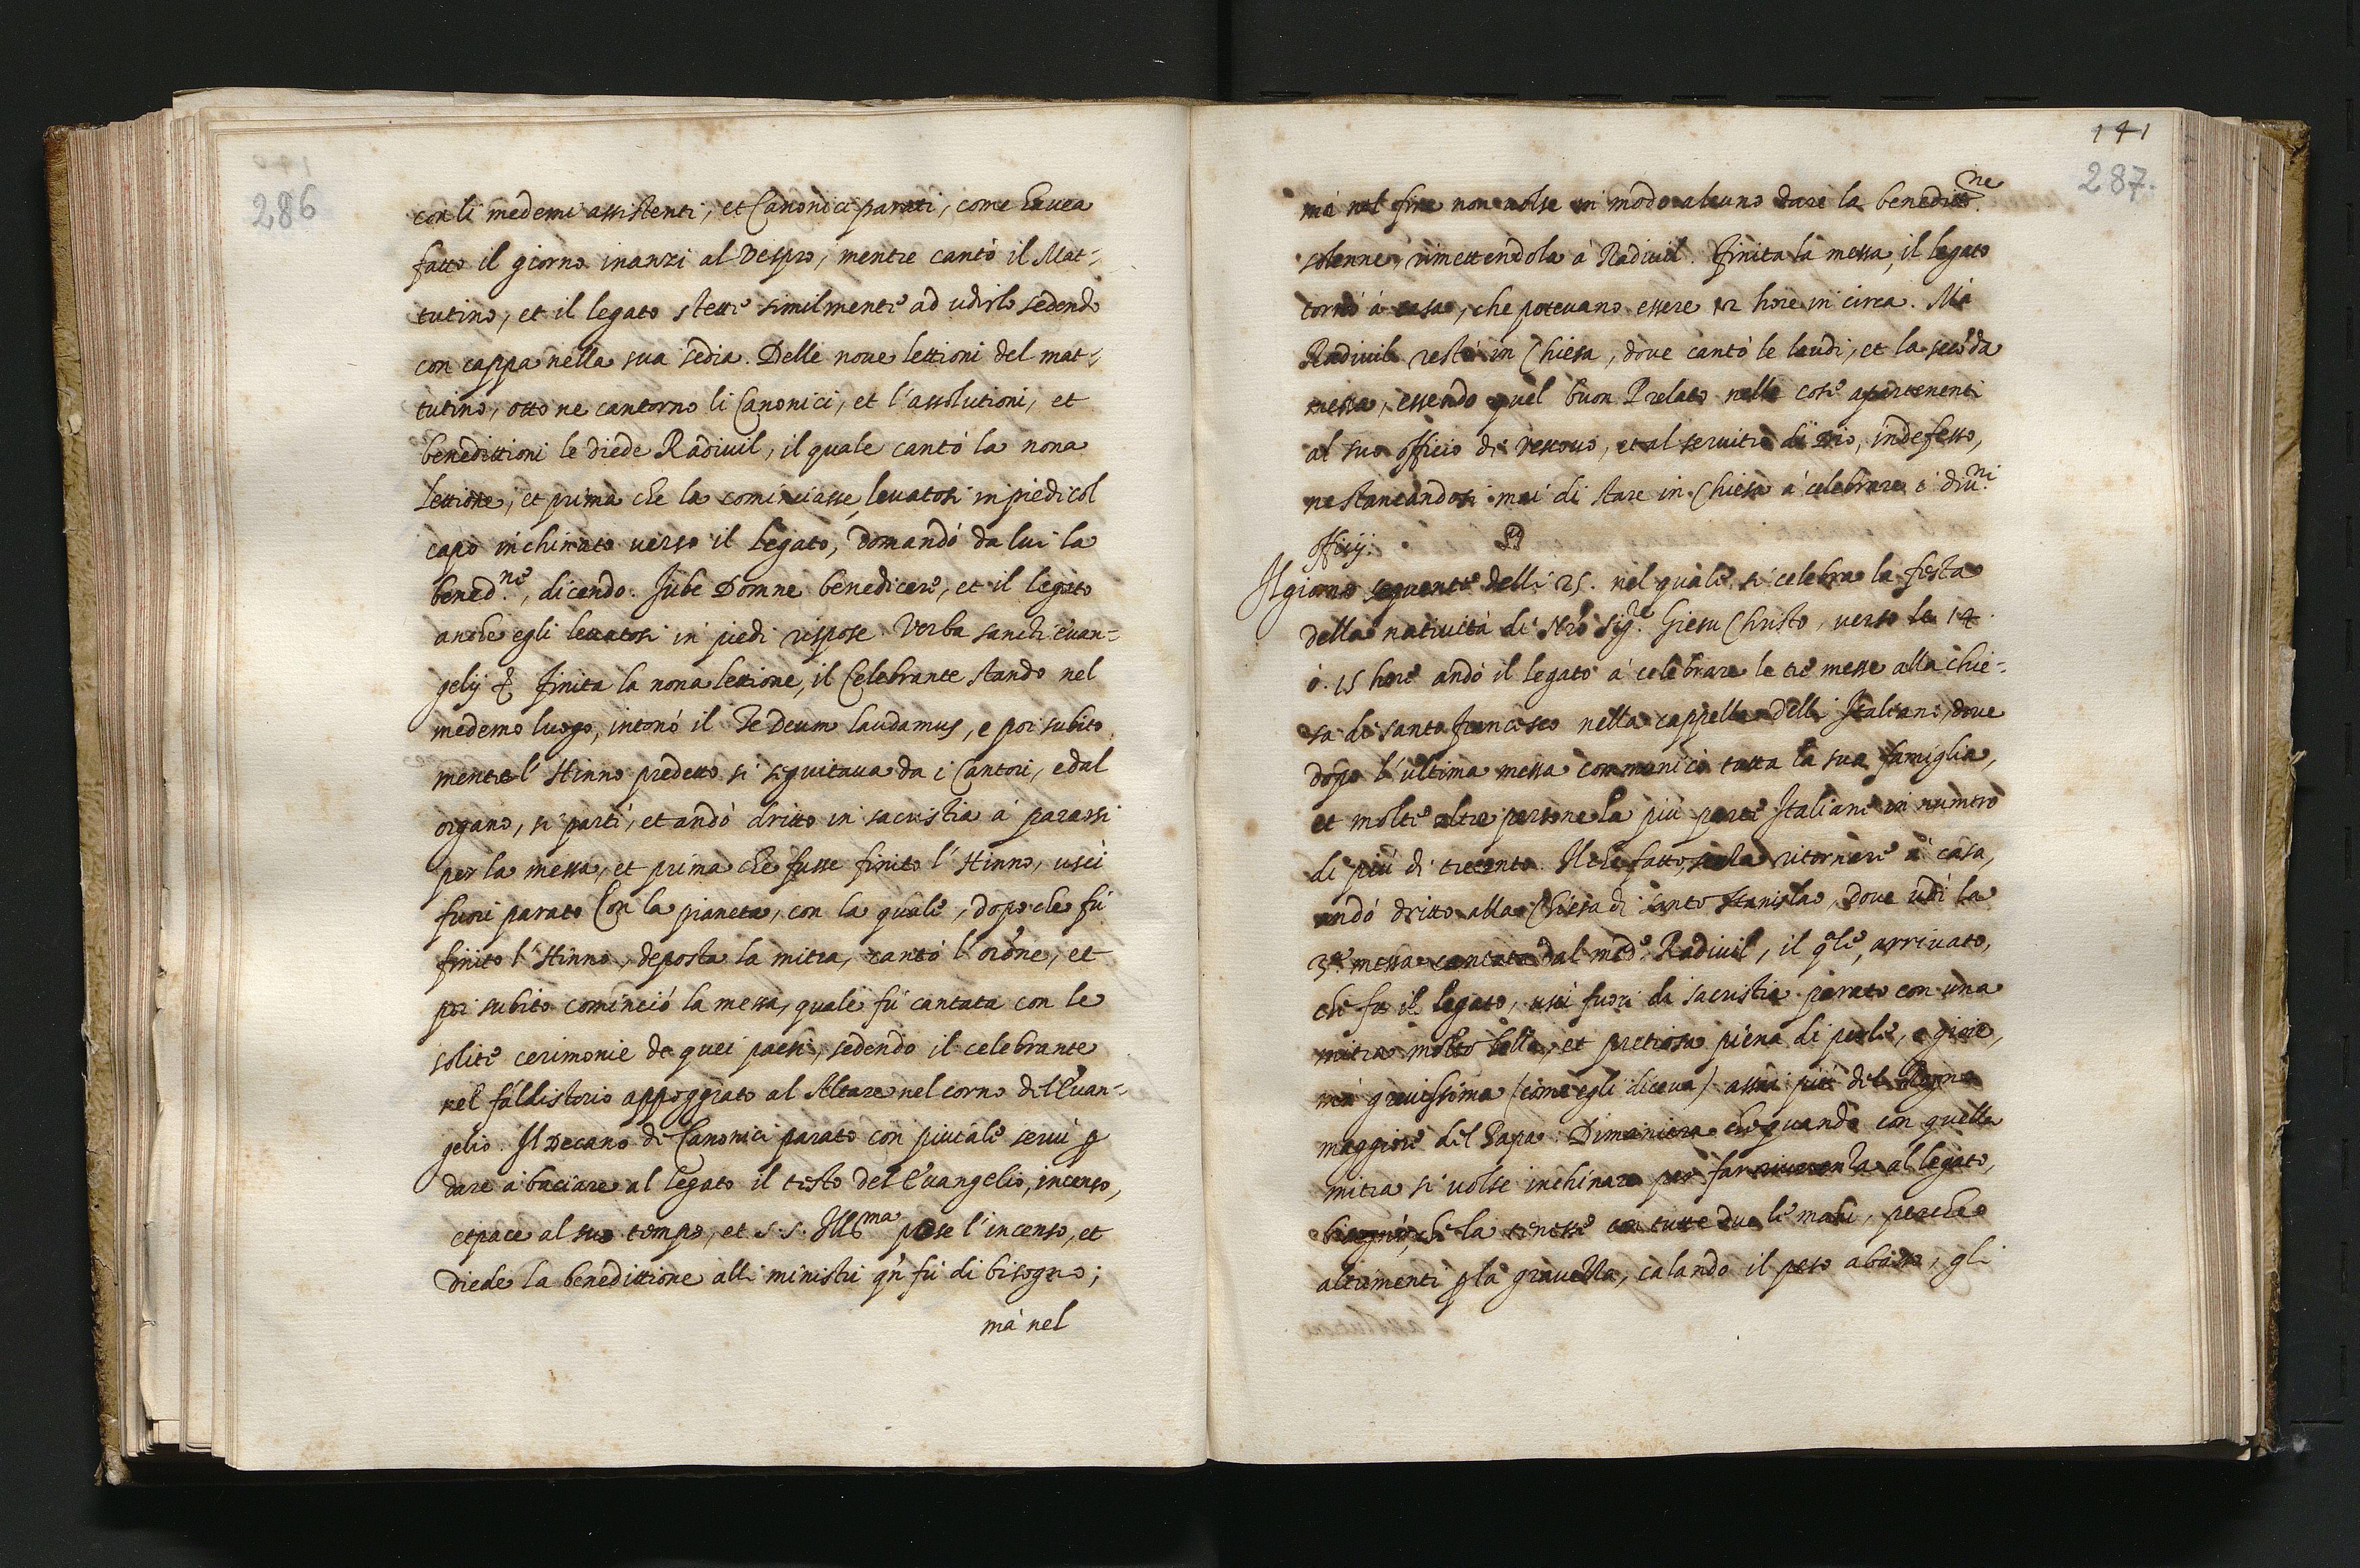 286
con li medemi assistenti, et Canonici parati, come haueа
fatto il giorno inanzi al Vespro, mentre cantò il Mat-
tutino, et il legato stette similmente ad udirlo sedendo
con cappa nella sua sedia. Delle noue lettioni del mat-
tutino, otto ne cantorno li Canonici, et l'assolutioni, et
benedittioni le diede Radiuil, il quale cantò la nona
lettione, et prima che la cominciasse, leuatosi in piedi col
capo inchinato uerso il legato, domandò da lui la
bened.ne, dicendo. Jube Domne benedicere, et il legato
anche egli leuatosi in piedi rispose Verba sancti euan-
gelij &. Finita la nona lettione, il Celebrante stando nel
medemo luogo, intonò il Te Deum laudamus, e poi subito
mentre l'Hinno predetto si seguitaua da i Cantori, e dal
organo, si partì, et andò dritto in sacristia à pararsi
per la messa, et prima che fusse finito l'Hinno, uscì
fuori parato con la pianeta, con la quale, dopo che fù
finito l'Hinno, deposta la mitra, cantò l'orone, et
poi subito cominciò la messa, quale fù cantata con le
solite cerimonie de quei paesi, sedendo il celebrante
nel faldistorio appoggiato al Altare nel corno dell'Euan-
gelio. Il Decano de Canonici parato con piuiale seruì p
dare à baciare al legato il testo dell'Euangelio, incenso,
et pace al suo tempo, et S. S. Ill.ma pose l'incenso, et
diede la benedittione alli ministri qn fù di bisogno;
mà nel
141
287.
mà nel fine non uolse in modo alcuno dare la benedittne.
solenne, rimettendola à Radiuil. Finita la messa, il legato
tornò à casa, che poteuano essere 12 hore in circa. Mà
Radiuil restò in Chiesa, doue cantò le laudi, et la secoda
messa, essendo quel buon Prelato nelle cose apartenenti
al suo officio di Vescouo, et al seruitio di Dio, indefesso,
ne stancandosi mai di stare in Chiesa à celebrare i diu.ni
officij.
Il giorno seguente delli 25. nel quale si celebra la festa
della natiuità di Nro Sig.re Giesu Christo, uerso le 14.
ò. 15 hore andò il legato à celebrare le tre messe alla chie-
sa di santo Francesco nella cappella delli Italiani, doue
dopo l'ultima messa communicò tutta la sua famiglia,
et molte altre persone la più parte Italiani in numero
di più di trecento. Il che fatto, senza ritornare à casa,
andò dritto alla Chiesa di santo Stanislao, doue udì la
3.a messa cantata dal med.o Radiuil, il qle, arriuato,
che fu il legato, uscì fuori di sacristia parato con una
mitra molto bella, et pretiosa piena di perle, e gioie,
mà grauissima (come egli diceua) assai più del Regno
maggiore del Papa. Dimaniera che quando con quella
mitra si uolse inchinare per far riuerenza al legato,
bisognò, che la tenesse con tutte due le mani, perche
altrimenti p la grauezza, calando il peso abasso, gli